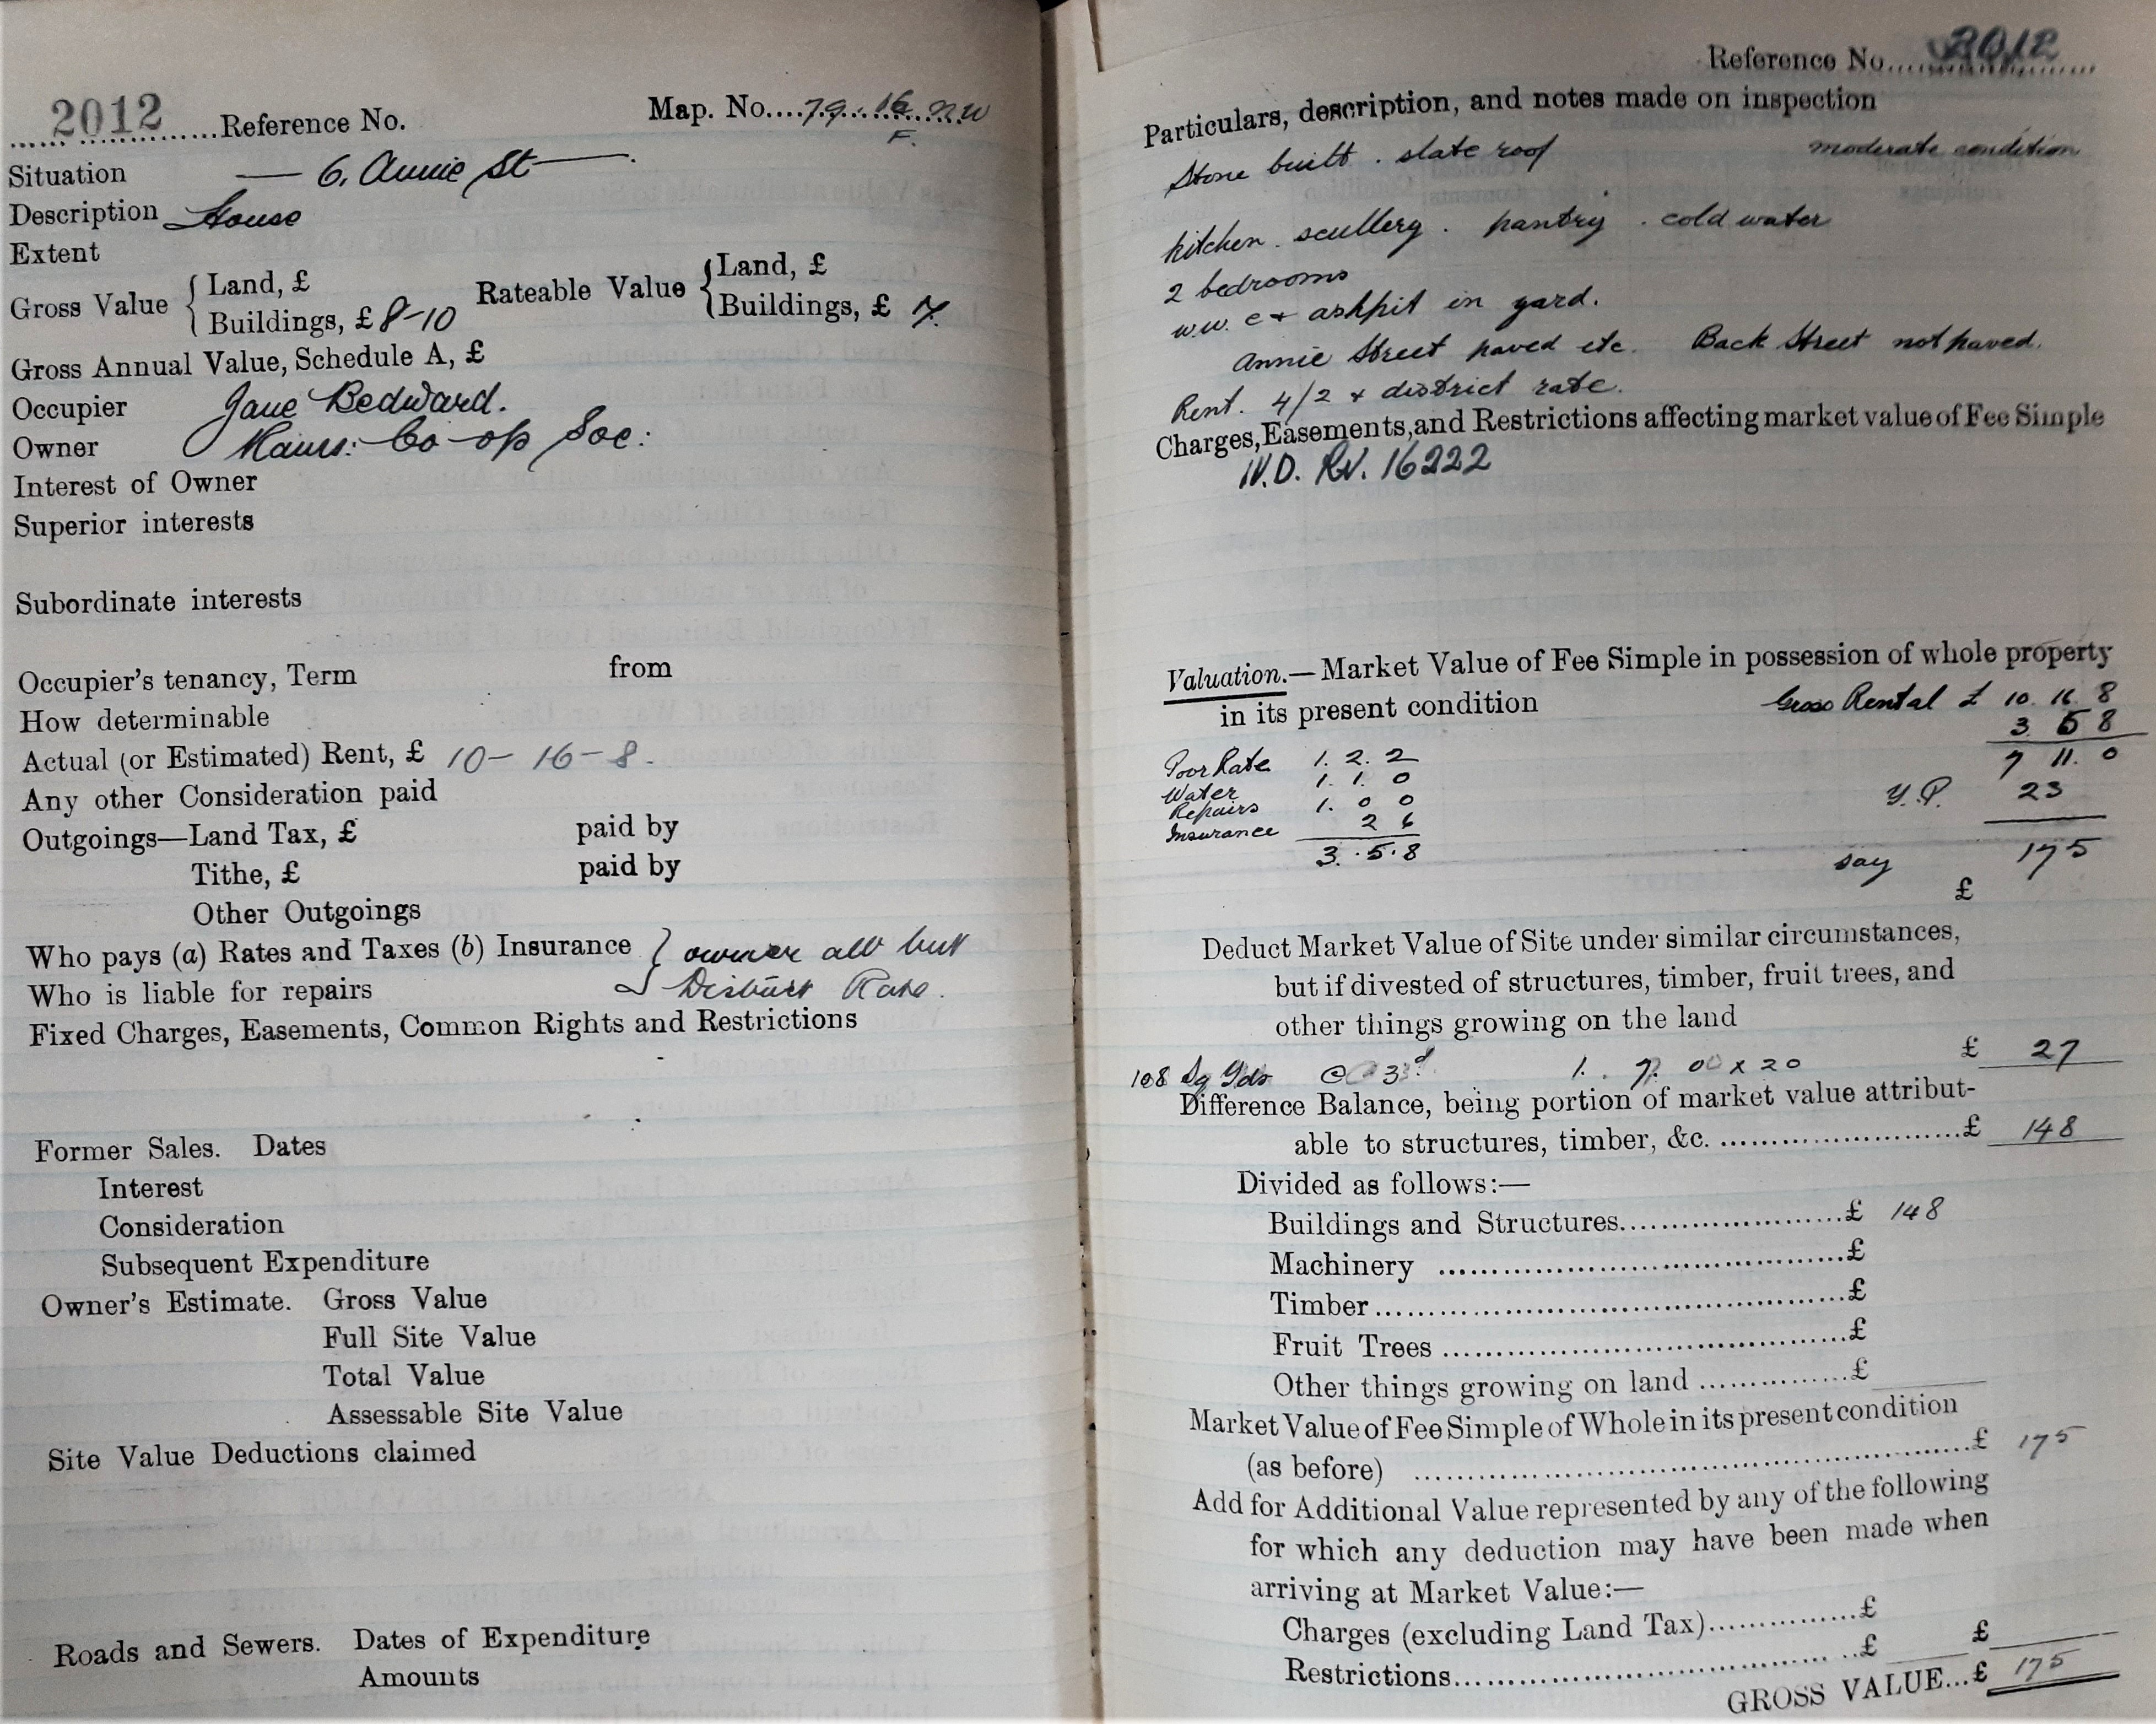 2012 Reference No. Map. No. 79. 16. SW
F.
Situation — 6, Annie St —
Description House
Extent
Gross Value { Land, £ Rateable Value { Land, £
Buildings, £ 8-10 Buildings, £ 7.
Gross Annual Value, Schedule A, £
Occupier Jane Bedward.
Owner Co-op Soc:
Interest of Owner
Superior interests
Subordinate interests
Occupier's tenancy, Term from
How determinable
Actual (or Estimated) Rent, £ 10 - 16 - 8.
Any other Consideration paid
Outgoings—Land Tax, £ paid by
Tithe, £ paid by
Other Outgoings
Who pays (a) Rates and Taxes (b) Insurance } owner all but
Who is liable for repairs District Rate.
Fixed Charges, Easements, Common Rights and Restrictions
Former Sales. Dates
Interest
Consideration
Subsequent Expenditure
Owner's Estimate. Gross Value
Full Site Value
Total Value
Assessable Site Value
Site Value Deductions claimed
Roads and Sewers. Dates of Expenditure
Amounts
Reference No. 2012
Particulars, description, and notes made on inspection
Stone built . slate roof moderate condition
kitchen . scullery . pantry . cold water
2 bedrooms
w.w.c + ashpit in yard.
Annie Street paved etc. Back Street not paved.
Rent. 4/2 + district rate.
Charges, Easements, and Restrictions affecting market value of Fee Simple
16222
Valuation.—Market Value of Fee Simple in possession of whole property
in its present condition Gross Rental £ 10. 16. 8
3 5 8
Poor Rate 1. 2. 2 7 11. 0
Water 1. 1. 0
Repairs 1. 0 0 Y.P. 23
Insurance 2 6
3. 5. 8 say 175
£
Deduct Market Value of Site under similar circumstances,
but if divested of structures, timber, fruit trees, and
other things growing on the land
108 Sq Yds @ 3d 1. 7. 0 x 20 £ 27
Difference Balance, being portion of market value attribut-
able to structures, timber, &c. £ 148
Divided as follows:—
Buildings and Structures £ 148
Machinery £
Timber £
Fruit Trees £
Other things growing on land £
Market Value of Fee Simple of Whole in its present condition
(as before) £ 175
Add for Additional Value represented by any of the following
for which any deduction may have been made when
arriving at Market Value:—
Charges (excluding Land Tax) £
Restrictions £ £
GROSS VALUE...£ 175